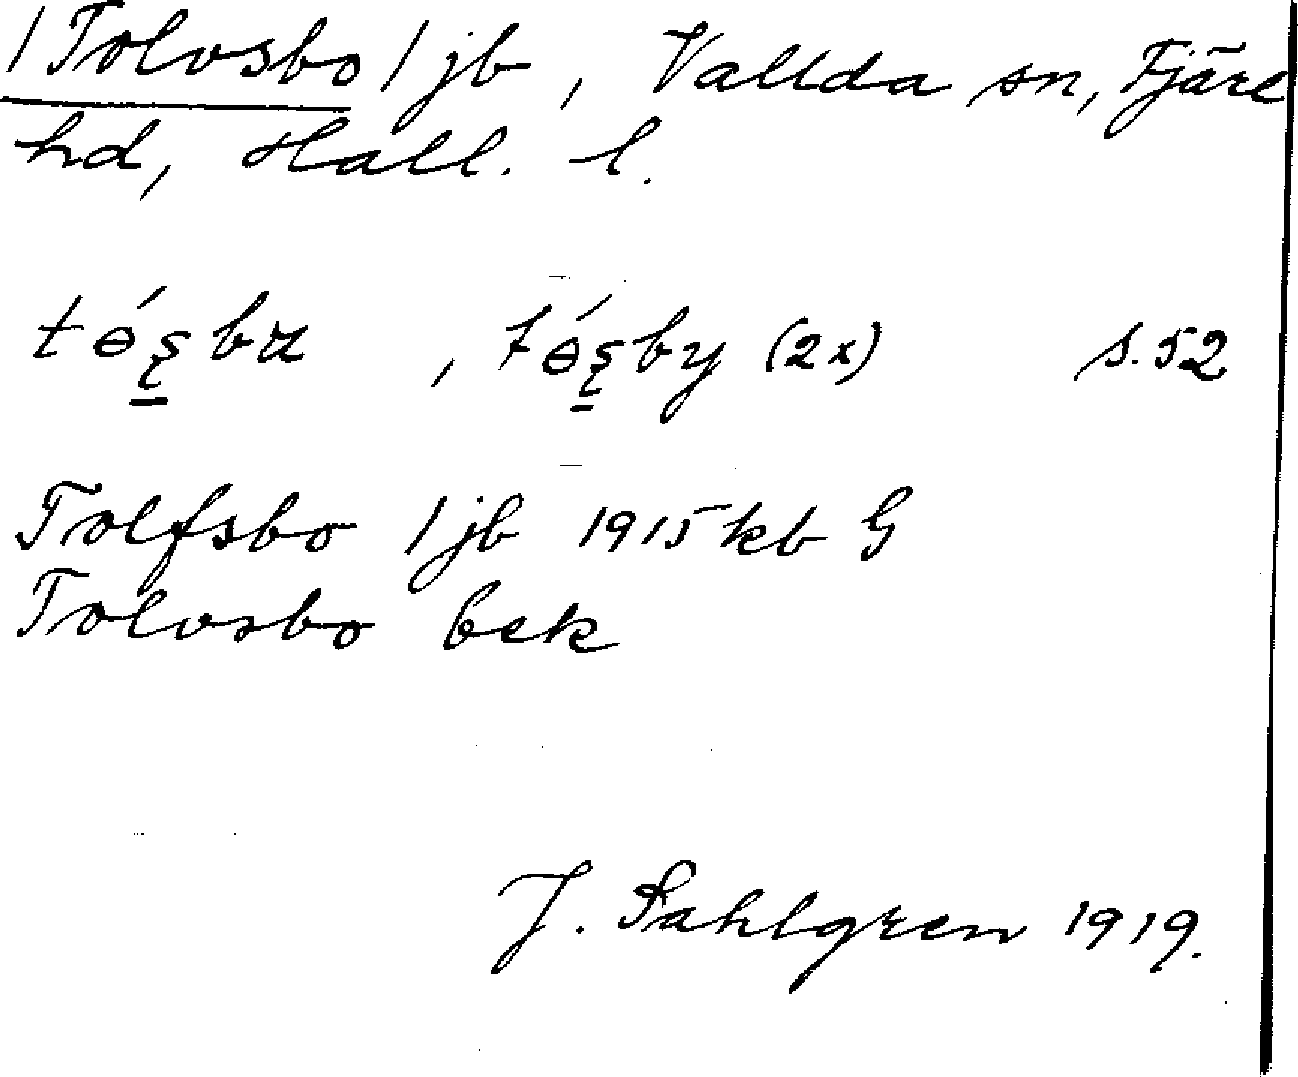 /Tolvsbo/ jb, Vallda sn, Fjäre
hd, Hall. l.
s. 52
Tolfsbo / jb 1915 kb G
Tolvsbo bek
J. Sahlgren 1919.